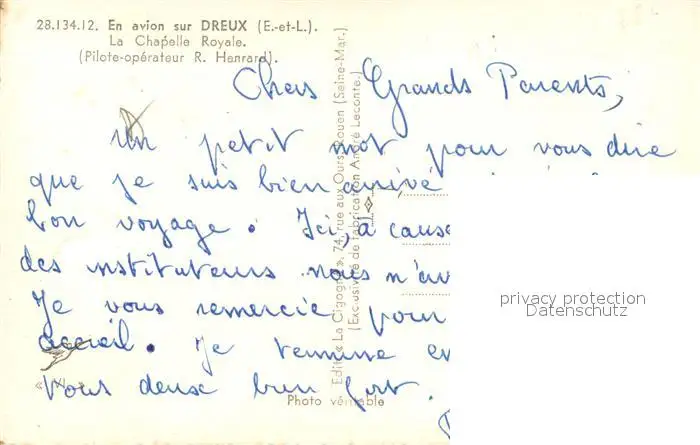 28.134.12. En avion sur DREUX (E.-et-L.).
La Chapelle Royale.
(Pilote-opérateur R. Henrard).
Chers Grands Parents,
Un petit mot pour vous dire
que je suis bien arrivé
bon voyage. Ici, à cause
des instituteurs nous n'av
Je vous remercie pour
accueil. Je termine en
vous deux bien fort.
Edit. « La Cigogne », 74, rue aux Ours, Rouen (Seine-Mar.)
(Exclusivité de fabrication André Leconte.)
Photo véritable
privacy protection
Datenschutz